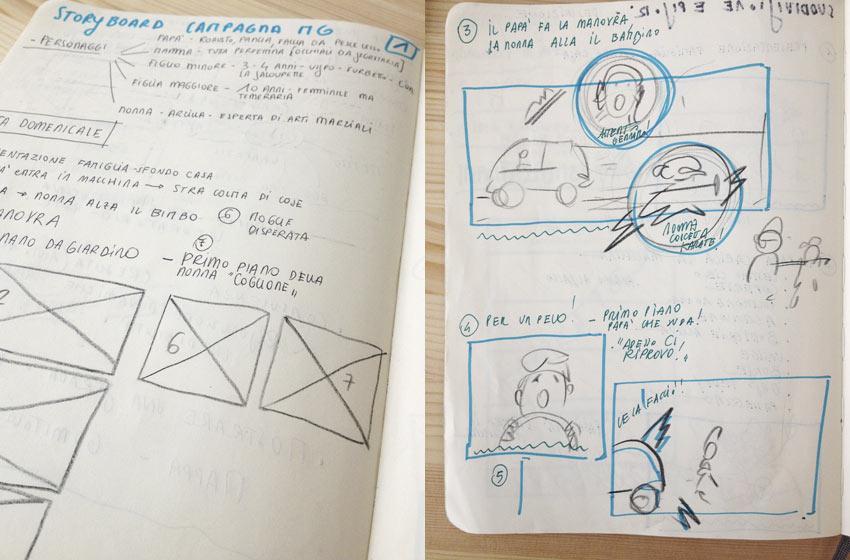 STORYBOARD CAMPAGNA MG
1
- PERSONAGGI
PAPA' - ROBUSTO, PANCIA, FACCIA DA PESCE LESSO
MAMMA - TUTA PERFEMMA [OCCHIALI DA SEGRETARIA]
FIGLIO MINORE - 3-4 ANNI - VISPO - FURBETTO - CON
LA SALOUPETTE
FIGLIA MAGGIORE - 10 ANNI - FEMMINILE MA
TEMERARIA
NONNA - ARZILLA - ESPERTA DI ARTI MARZIALI
TA DOMENICALE
ENTAZIONE FAMIGLIA - SFONDO CASA
A' ENTRA IN MACCHINA → STRA COLMA DI COSE
A → NONNA ALZA IL BIMBO
6 MOGLIE
DISPERATA
ANOVRA
7
NANO DA GIARDINO
- PRIMO PIANO DELLA
NONNA "COGLIONE"
2
6
7
3 IL PAPA' FA LA MANOVRA
LA NONNA ALZA IL BAMBINO
ATTENTO
NONNA
KARATE!
4 PER UN PELO!
- PRIMO PIANO
PAPA' CHE SUDA!
"ADESSO CI
RIPROVO!"
CE LA FACCIO!!
5